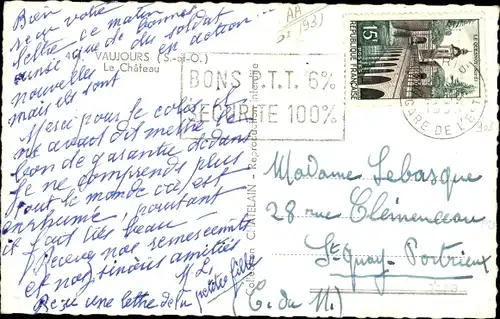 Bien
reçu votre
lettre ce matin
ainsi que de bonnes
nouvelles du soldat
mais ils sont en action...
Merci pour le colis
me avait dit mettre
bon de garantie dedans
Je ne comprends plus
tout le monde ici est
enrhumé, pourtant
il fait très beau
Recevez nos remerciements
et nos sincères amitiés
M L
Reçu une lettre de la petite fille
VAUJOURS (S.-et-O.)
Le Château
BONS P.T.T. 6%
SÉCURITÉ 100%
15F
RÉPUBLIQUE FRANÇAISE
LE QUESNOY
GARE DE L'EST
AA
Collection CHATELAIN - Reproduction interdite
Madame Lebasque
28 rue Clémenceau
St-Quay-Portrieux
(C. du N.)